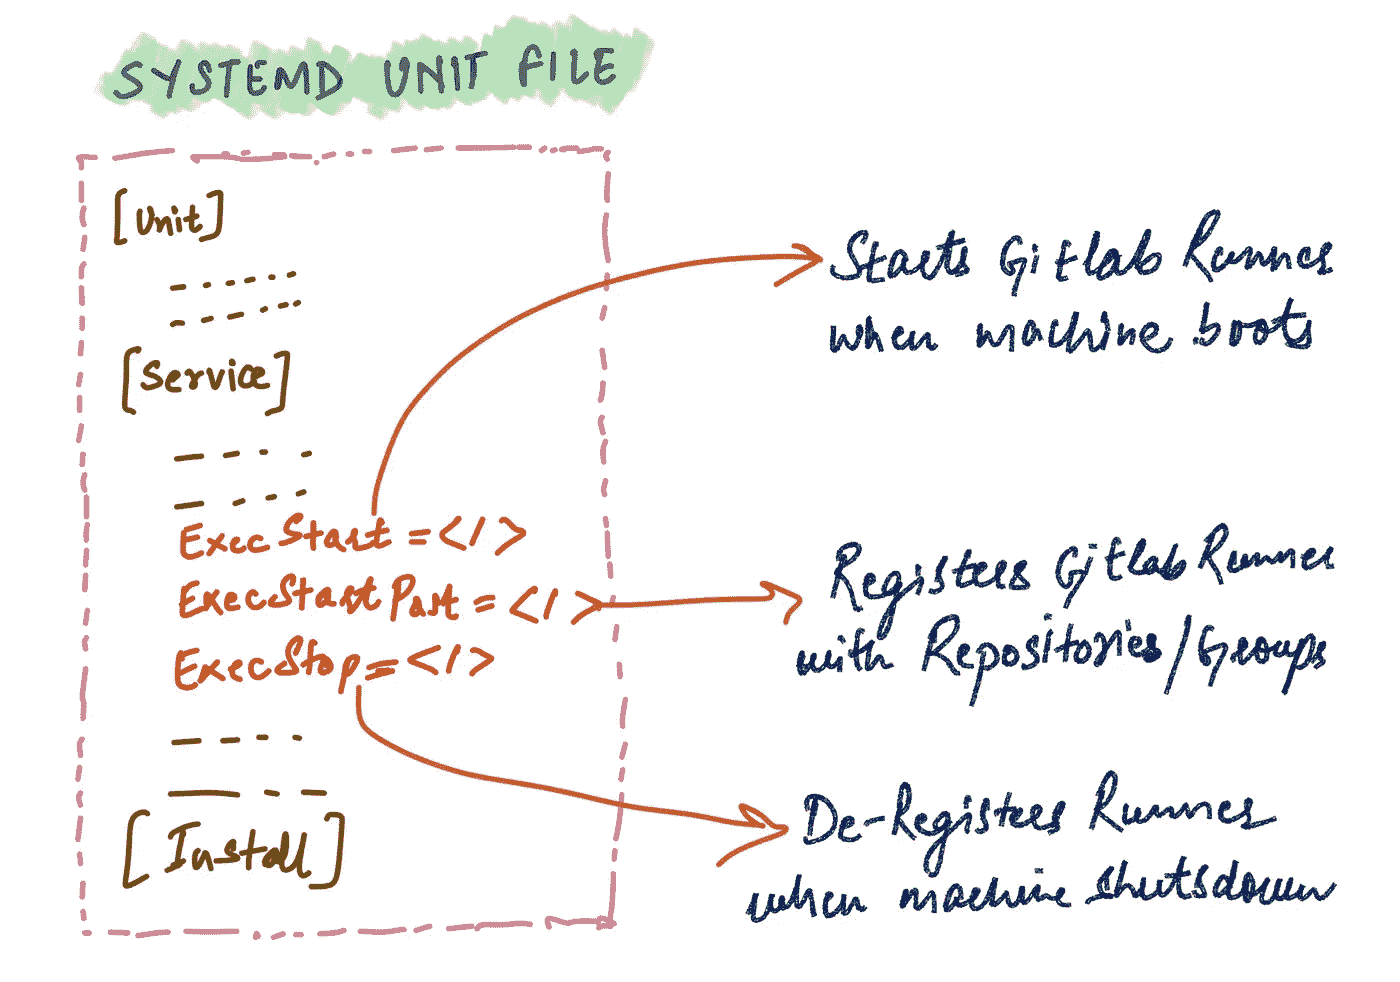 SYSTEMD UNIT FILE
[Unit]
[Service]
ExecStart = </>
ExecStartPost = </>
ExecStop = </>
[Install]
Starts Gitlab Runner
when machine boots
Registers Gitlab Runner
with Repositories/Groups
De-Registers Runner
when machine shutsdown